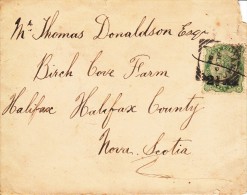 Mr. Thomas Donaldson Esqr
Birch Cove Farm
Halifax Halifax County
Nova Scotia